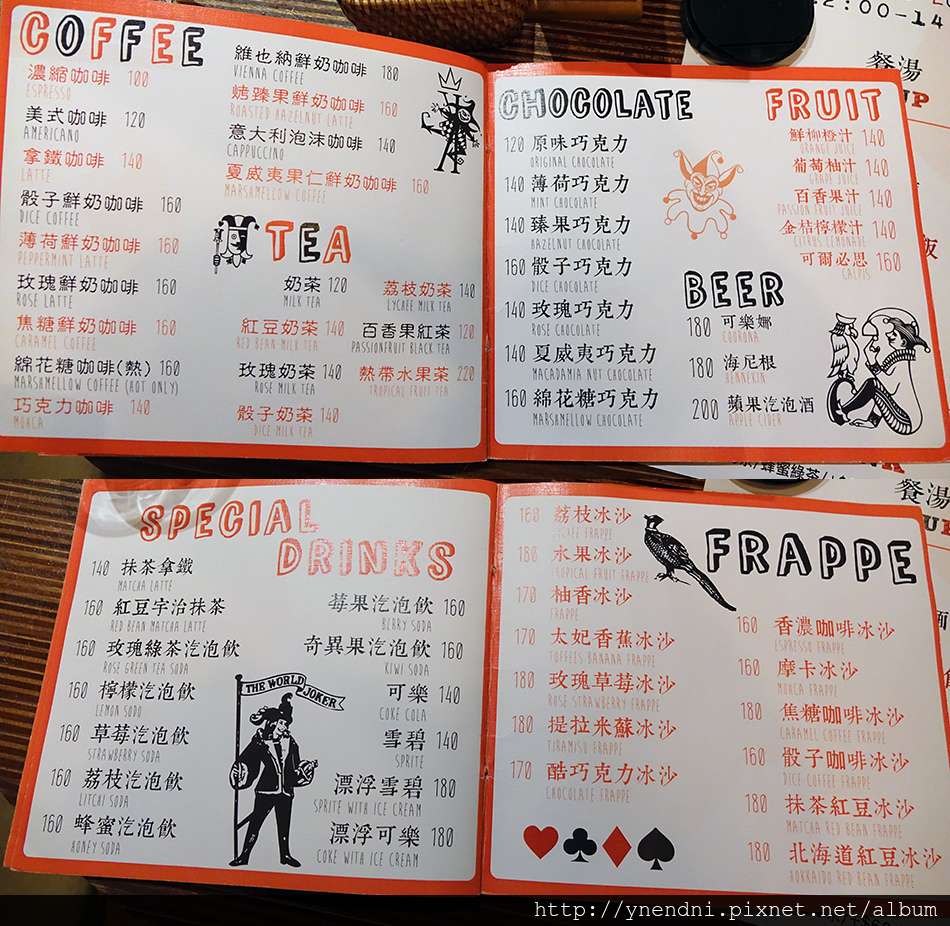 COFFEE
濃縮咖啡 100
ESPRESSO
美式咖啡 120
AMERICANO
拿鐵咖啡 140
LATTE
骰子鮮奶咖啡 160
DICE COFFEE
薄荷鮮奶咖啡 160
PEPPERMINT LATTE
玫瑰鮮奶咖啡 160
ROSE LATTE
焦糖鮮奶咖啡 160
CARAMEL COFFEE
綿花糖咖啡(熱) 160
MARSHMELLOW COFFEE (HOT ONLY)
巧克力咖啡 140
MOHCA
維也納鮮奶咖啡 180
VIENNA COFFEE
烤臻果鮮奶咖啡 160
ROASTED HAZELNUT LATTE
意大利泡沫咖啡 140
CAPPUCCINO
夏威夷果仁鮮奶咖啡 160
MARSHMELLOW COFFEE
TEA
奶茶 120
MILK TEA
紅豆奶茶 140
RED BEAN MILK TEA
玫瑰奶茶 140
ROSE MILK TEA
骰子奶茶 140
DICE MILK TEA
荔枝奶茶 140
LYCHEE MILK TEA
百香果紅茶 120
PASSIONFRUIT BLACK TEA
熱帶水果茶 220
TROPICAL FRUIT TEA
CHOCOLATE
120 原味巧克力
ORIGINAL CHOCOLATE
140 薄荷巧克力
MINT CHOCOLATE
140 臻果巧克力
HAZELNUT CHOCOLATE
160 骰子巧克力
DICE CHOCOLATE
140 玫瑰巧克力
ROSE CHOCOLATE
140 夏威夷巧克力
MACADAMIA NUT CHOCOLATE
160 綿花糖巧克力
MARSHMELLOW CHOCOLATE
FRUIT
鮮柳橙汁 140
ORANGE JUICE
葡萄柚汁 140
GRAPE JUICE
百香果汁 140
PASSION FRUIT JUICE
金桔檸檬汁 140
CITRUS LEMONADE
可爾必思 160
CALPIS
BEER
180 可樂娜
COORONA
180 海尼根
HENNEKIN
200 蘋果汽泡酒
APPLE CIDER
2:00-14
餐湯
UP
飯
/蜂蜜綠茶/
SPECIAL
DRINKS
140 抹茶拿鐵
MATCHA LATTE
160 紅豆宇治抹茶
RED BEAN MATCHA LATTE
160 玫瑰綠茶汽泡飲
ROSE GREEN TEA SODA
160 檸檬汽泡飲
LEMON SODO
160 草莓汽泡飲
STRAWBERRY SODA
160 荔枝汽泡飲
LITCHI SODA
160 蜂蜜汽泡飲
HONEY SODA
莓果汽泡飲 160
BERRY SODA
奇異果汽泡飲 160
KIWI SODA
可樂 140
COKE COLA
雪碧 140
SPRITE
漂浮雪碧 180
SPRITE WITH ICE CREAM
漂浮可樂 180
COKE WITH ICE CREAM
THE WORLD JOKER
FRAPPE
160 荔枝冰沙
FRAPPE
180 水果冰沙
TROPICAL FRUIT FRAPPE
170 柚香冰沙
FRAPPE
170 太妃香蕉冰沙
TOFFEES BANANA FRAPPE
180 玫瑰草莓冰沙
ROSE STRAWBERRY FRAPPE
180 提拉米蘇冰沙
TIRAMISU FRAPPE
170 酷巧克力冰沙
CHOCOLATE FRAPPE
160 香濃咖啡冰沙
ESPRESSO FRAPPE
160 摩卡冰沙
MOHCA FRAPPE
180 焦糖咖啡冰沙
CARAMEL COFFEE FRAPPE
160 骰子咖啡冰沙
DICE COFFEE FRAPPE
180 抹茶紅豆冰沙
MATCHA RED BEAN FRAPPE
180 北海道紅豆冰沙
HOKKAIDO RED BEAN FRAPPE
餐湯
UP
http://ynendni.pixnet.net/album